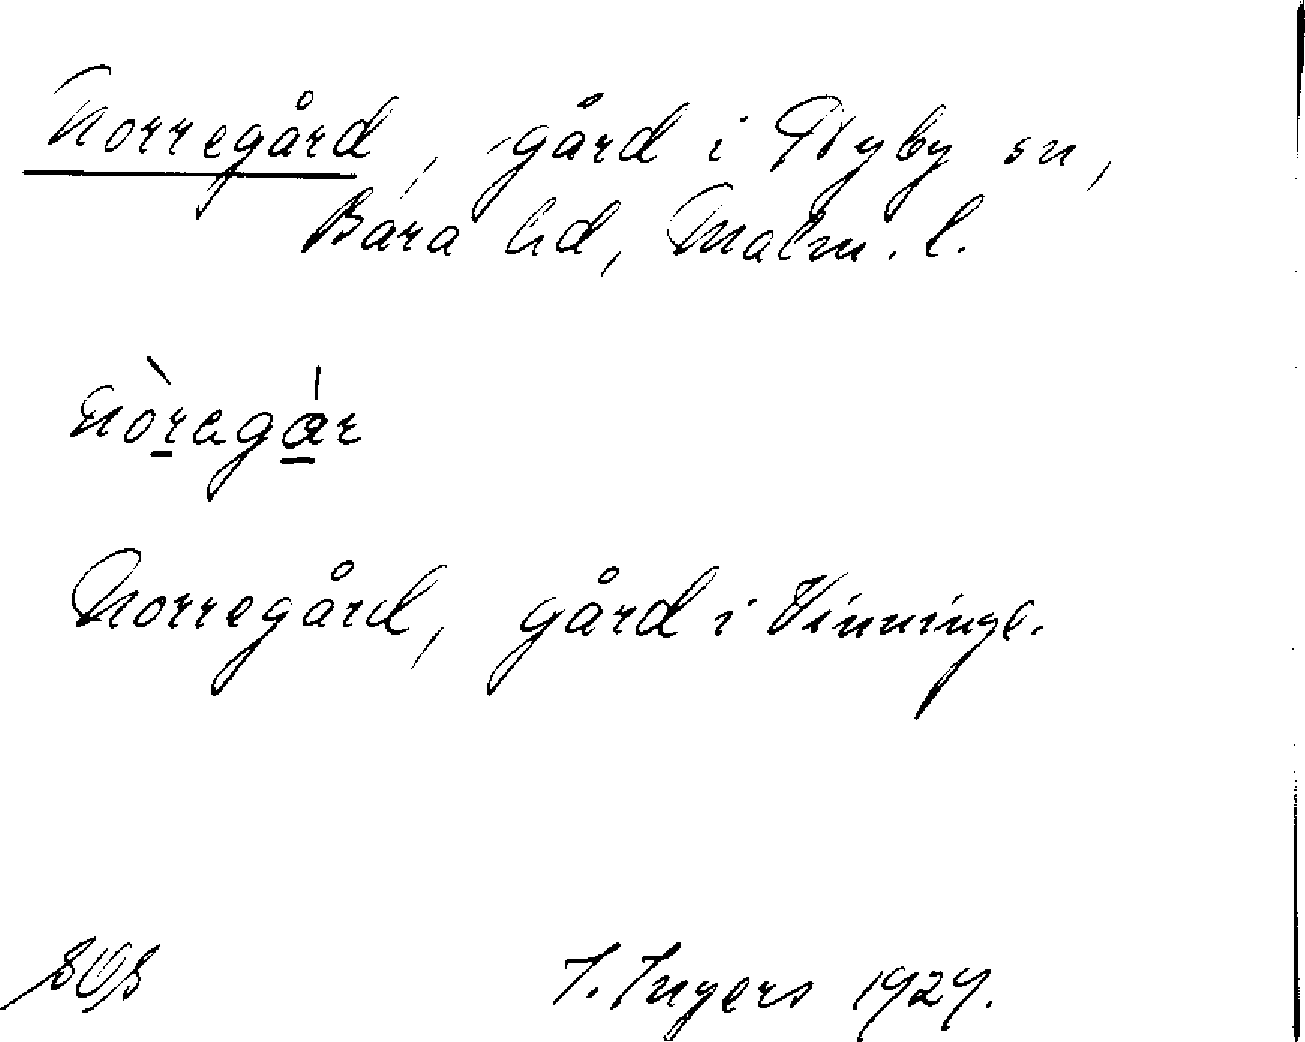 Norregård, gård i Nyby sn,
Bara hd, Malm. l.
nòragár
Norregård, gård i Vinninge.
I. Ingers 1929.